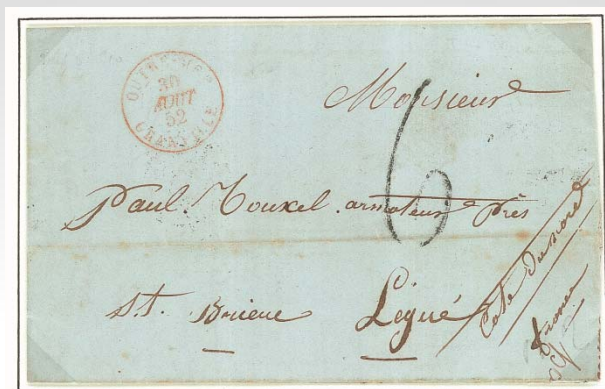 OUTRE-MER
30
AOUT
52
GRANVILLE
Monsieur
6
Paul Rouxel armateur Près
St. Brieuc Légué
Cote Du nord
france